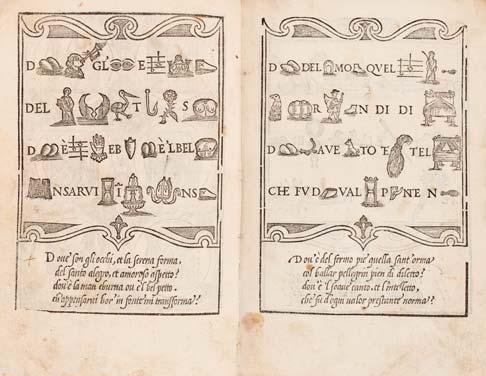 D GL E
DEL T S
D E EB È'LBEL
NSARVI Î NS
Doue son gli occhi, et la serena forma,
del santo alegro, et amoroso aspetto?
dou'è la man eburna ou'è l bel petto.
ch'appensarui hor' in fonte mi transforma?
D DEL MO QVEL
R N DI DI
D AVE TO 'E TEL
CHE FVD VAL P NEN
Dou'è del fermo pie quella sant'orma
col ballar pellegrin pien di diletto?
dou'è 'l soaue canto, et l'intelletto,
che fu d'ogni ualor prestante norma?